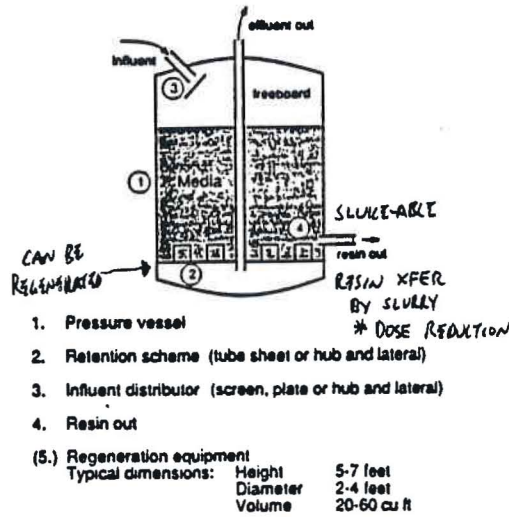 effluent out
Influent
3
freeboard
1
Media
4
SLUICE-ABLE
resin out
CAN BE
REGENERATED
2
RESIN XFER
BY SLURRY
* DOSE REDUCTION
1. Pressure vessel
2. Retention scheme (tube sheet or hub and lateral)
3. Influent distributor (screen, plate or hub and lateral)
4. Resin out
(5.) Regeneration equipment
Typical dimensions: Height 5-7 feet
Diameter 2-4 feet
Volume 20-60 cu ft